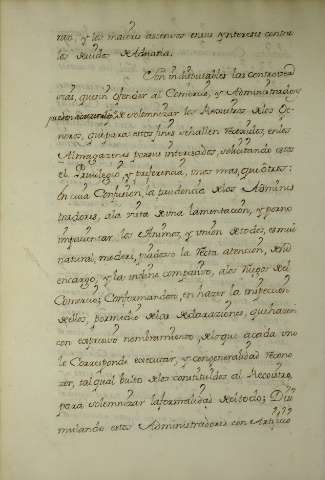 ran, y los maiores ascensos en sus yntereses contra
los de de Aduana.
Son indisputables las controver
sias, que sin ofender al Comercio, y Administradores
de solemnizar los Recuentos de los Ge-
neros, que para estos fines se hallen en los
Almagazenes por sus interesados, solicitando estos
el Privilegio, y preferencia, unos mas, que otros:
En cuia Confusion, la prudencia de los Adminis
tradores, a la vista de una lamentacion, y por no
impacientar los Animos, y union de todos, es mui
natural, modere, la recta atencion, de su
encargo, y la indine compasivo, a los ruegos del
Comercio; Conformandose, en hazer la inspeccion
de ellos, por medio de las declaraciones, que hazen
con expresivo nombramiento, de los que a cada uno
le Corresponde executar, y con generalidad recono
zer, tal qual bulto de los constituidos al Recuento,
para solemnizar la formalidad de el oficio; Disi
mulando estos Administradores con Artificio